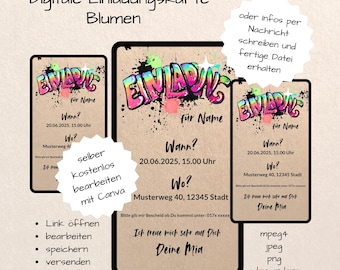 Digitale Einladungskarte
Blumen
oder Infos per
Nachricht
schreiben und
fertige Datei
erhalten
EINLADUNG
für Name
Wann?
20.06.2025, 15.00 Uhr
Wo?
Musterweg 40, 12345 Stadt
Ich freue mich sehr
EINLADUNG
für Name
Wann?
20.06.2025, 15.00 Uhr
Wo?
Musterweg 40, 12345 Stadt
Bitte gib mir Bescheid ob Du kommst unter: 017x xxxxx
Ich freue mich sehr auf Dich
Deine Mia
EINLADUNG
für Name
Wann?
20.06.2025, 15.00 Uhr
Wo?
Musterweg 40, 12345 Stadt
Ich freue mich sehr auf Dich
Deine Mia
selber
kostenlos
bearbeiten
mit Canva
Link öffnen
bearbeiten
speichern
versenden
mpeg4
jpeg
png